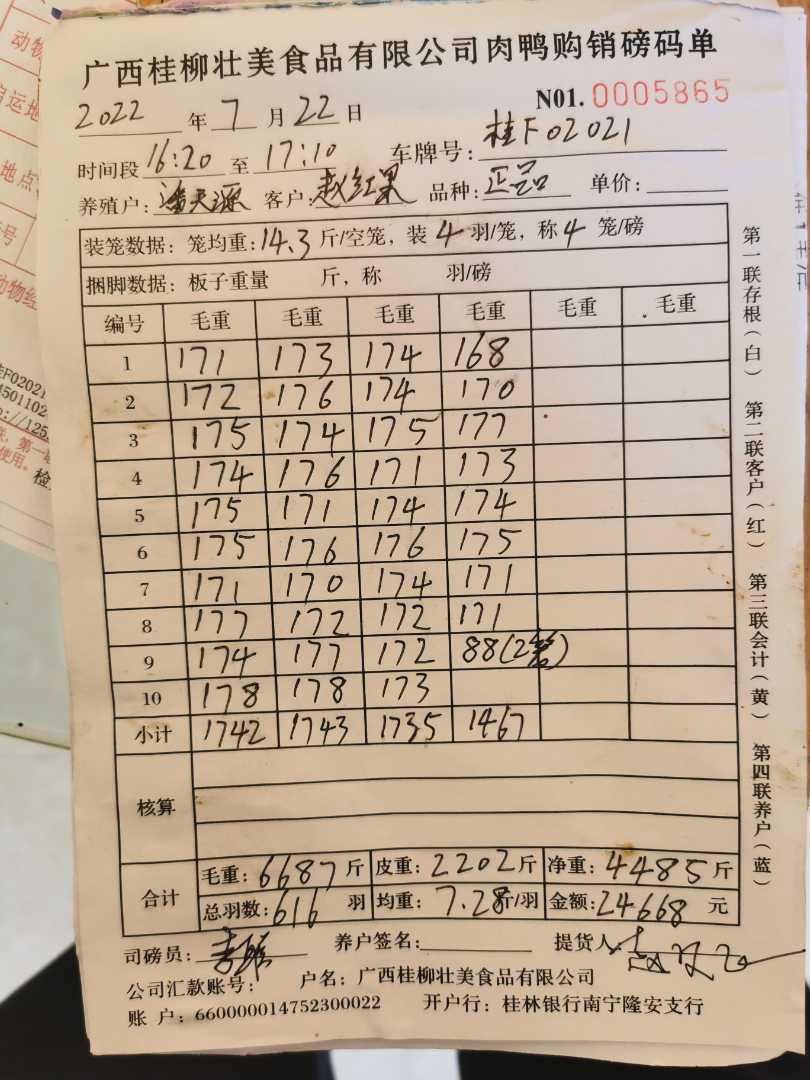 广西桂柳壮美食品有限公司肉鸭购销磅码单
2022 年 7 月 22 日 N01. 0005865
时间段 16:20 至 17:10 车牌号: 桂F02021
养殖户: 潘天源 客户: 赵红果 品种: 正品 单价:
装笼数据: 笼均重: 14.3 斤/空笼, 装 4 羽/笼, 称 4 笼/磅
捆脚数据: 板子重量 斤, 称 羽/磅
编号 毛重 毛重 毛重 毛重 毛重 毛重
1 171 173 174 168
2 172 176 174 170
3 175 174 175 177
4 174 176 171 173
5 175 171 174 174
6 175 176 176 175
7 171 170 174 171
8 177 172 172 171
9 174 177 172 88(2笼)
10 178 178 173
小计 1742 1743 1735 1467
核算
合计 毛重: 6687 斤 皮重: 2202 斤 净重: 4485 斤
总羽数: 616 羽 均重: 7.28 斤/羽 金额: 24668 元
司磅员: 养户签名: 提货人:
公司汇款账号: 户名: 广西桂柳壮美食品有限公司
账 户: 660000014752300022 开户行: 桂林银行南宁隆安支行
第一联存根(白) 第二联客户(红) 第三联会计(黄) 第四联养户(蓝)